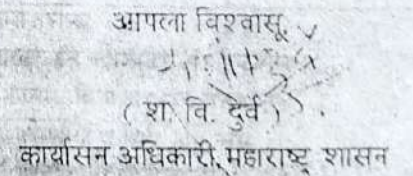 आपला विश्वासू,
( श. वि. दुर्वे )
कार्यासन अधिकारी, महाराष्ट्र शासन